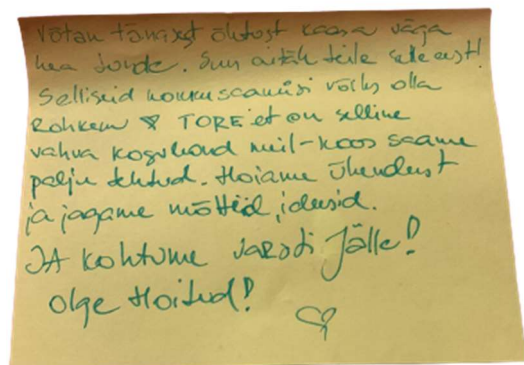 Võtan tänasest õhtust kaasa väga
hea tunde. Suur aitäh teile selle eest!
Selliseid kokkusaamisi võiks olla
Rohkem & TORE et on selline
vahva kogukond meil - koos saame
palju tehtud. Hoiame ühendust
ja jagame mõtteid, ideesid.
JA kohtume varsti Jälle!
Olge Hoitud!